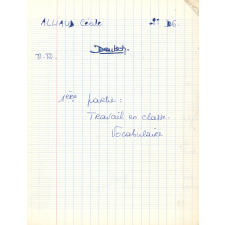 ALLIAUD Cécile 2° D6.
Deutsch.
1ère partie :
Travail en classe.
Vocabulaire